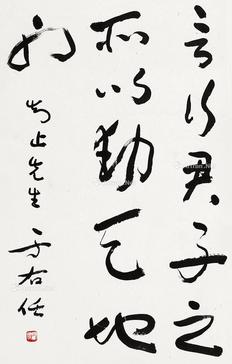 言行君子之
所以動天地
也
止先生 于右任